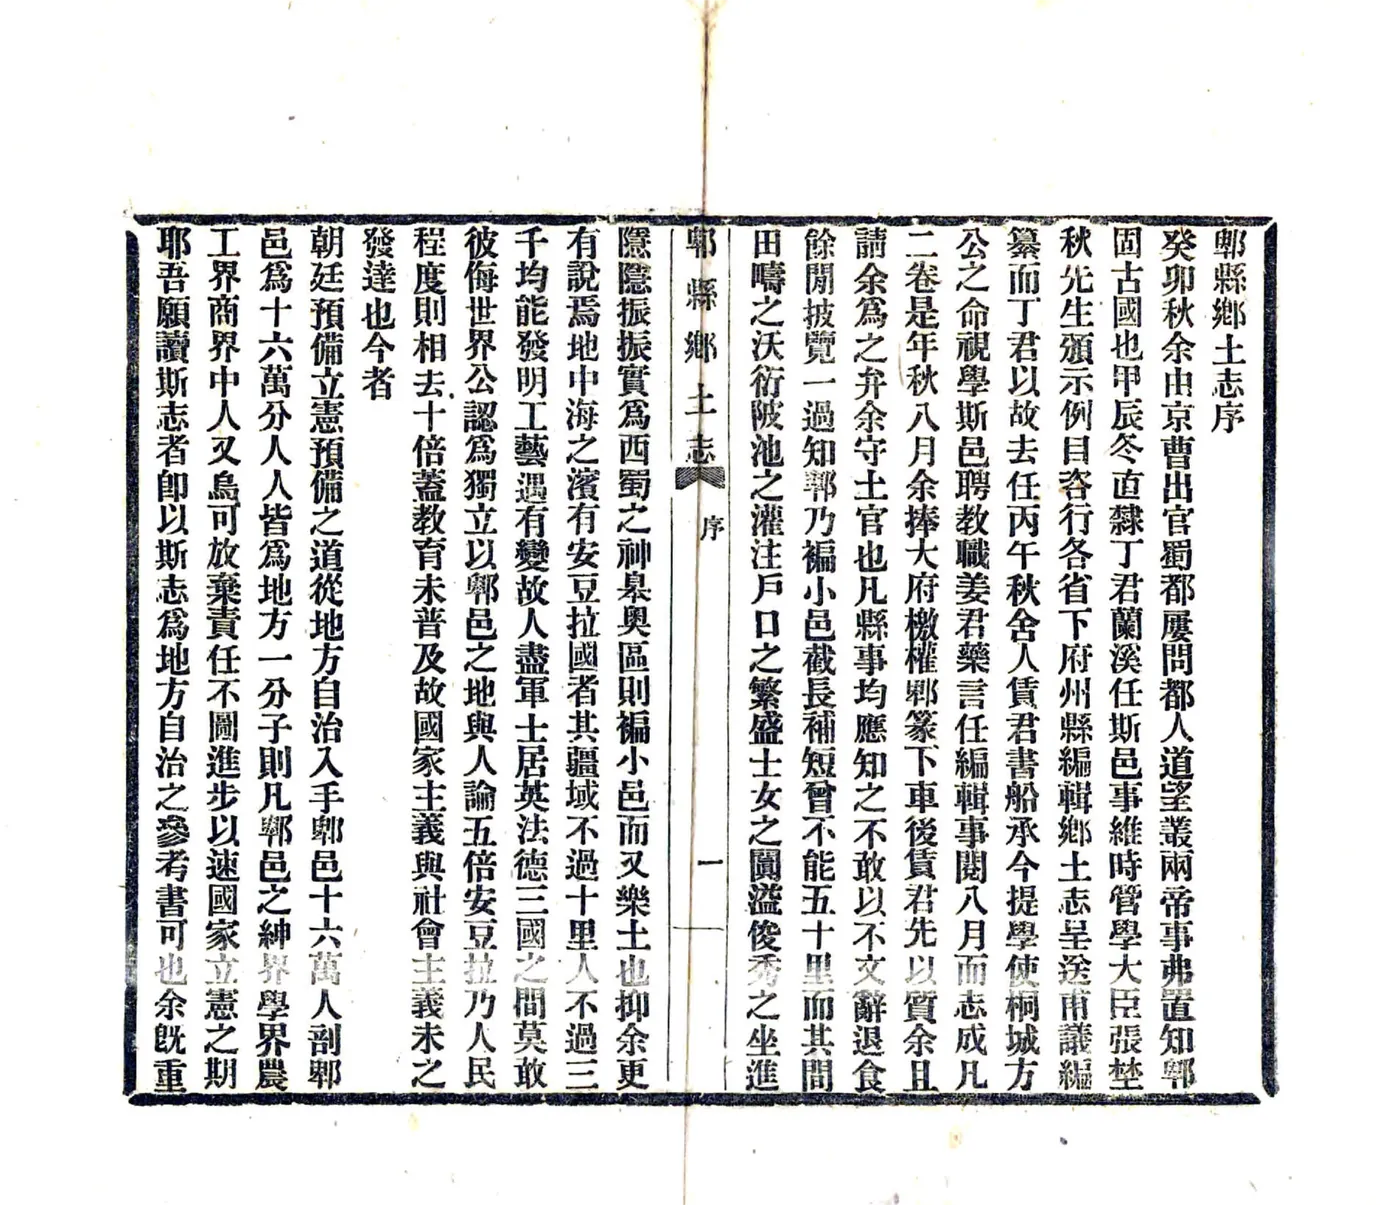 郫縣鄉土志序
癸卯秋余由京曹出官蜀都屢問都人道望叢兩帝事弗置知郫
固古國也甲辰冬直隸丁君蘭溪任斯邑事維時管學大臣張埜
秋先生頒示例目咨行各省下府州縣編輯鄉土志呈送甫議編
纂而丁君以故去任丙午秋舍人賃君書船承今提學使桐城方
公之命視學斯邑聘教職姜君藥言任編輯事閱八月而志成凡
二卷是年秋八月余捧大府檄權郫篆下車後賃君先以質余且
請余爲之弁余守土官也凡縣事均應知之不敢以不文辭退食
餘閒披覽一過知郫乃褊小邑截長補短曾不能五十里而其間
田疇之沃衍陂池之灌注戶口之繁盛士女之闐溢俊秀之坐進
郫縣鄉土志
序
一
隱隱振振實爲西蜀之神皋奧區則褊小邑而又樂土也抑余更
有說焉地中海之濱有安豆拉國者其疆域不過十里人不過三
千均能發明工藝遇有變故人盡軍士居英法德三國之間莫敢
彼侮世界公認爲獨立以郫邑之地與人論五倍安豆拉乃人民
程度則相去十倍蓋教育未普及故國家主義與社會主義未之
發達也今者
朝廷預備立憲預備之道從地方自治入手郫邑十六萬人剖郫
邑爲十六萬分人人皆爲地方一分子則凡郫邑之紳界學界農
工界商界中人又烏可放棄責任不圖進步以速國家立憲之期
耶吾願讀斯志者卽以斯志爲地方自治之參考書可也余旣重